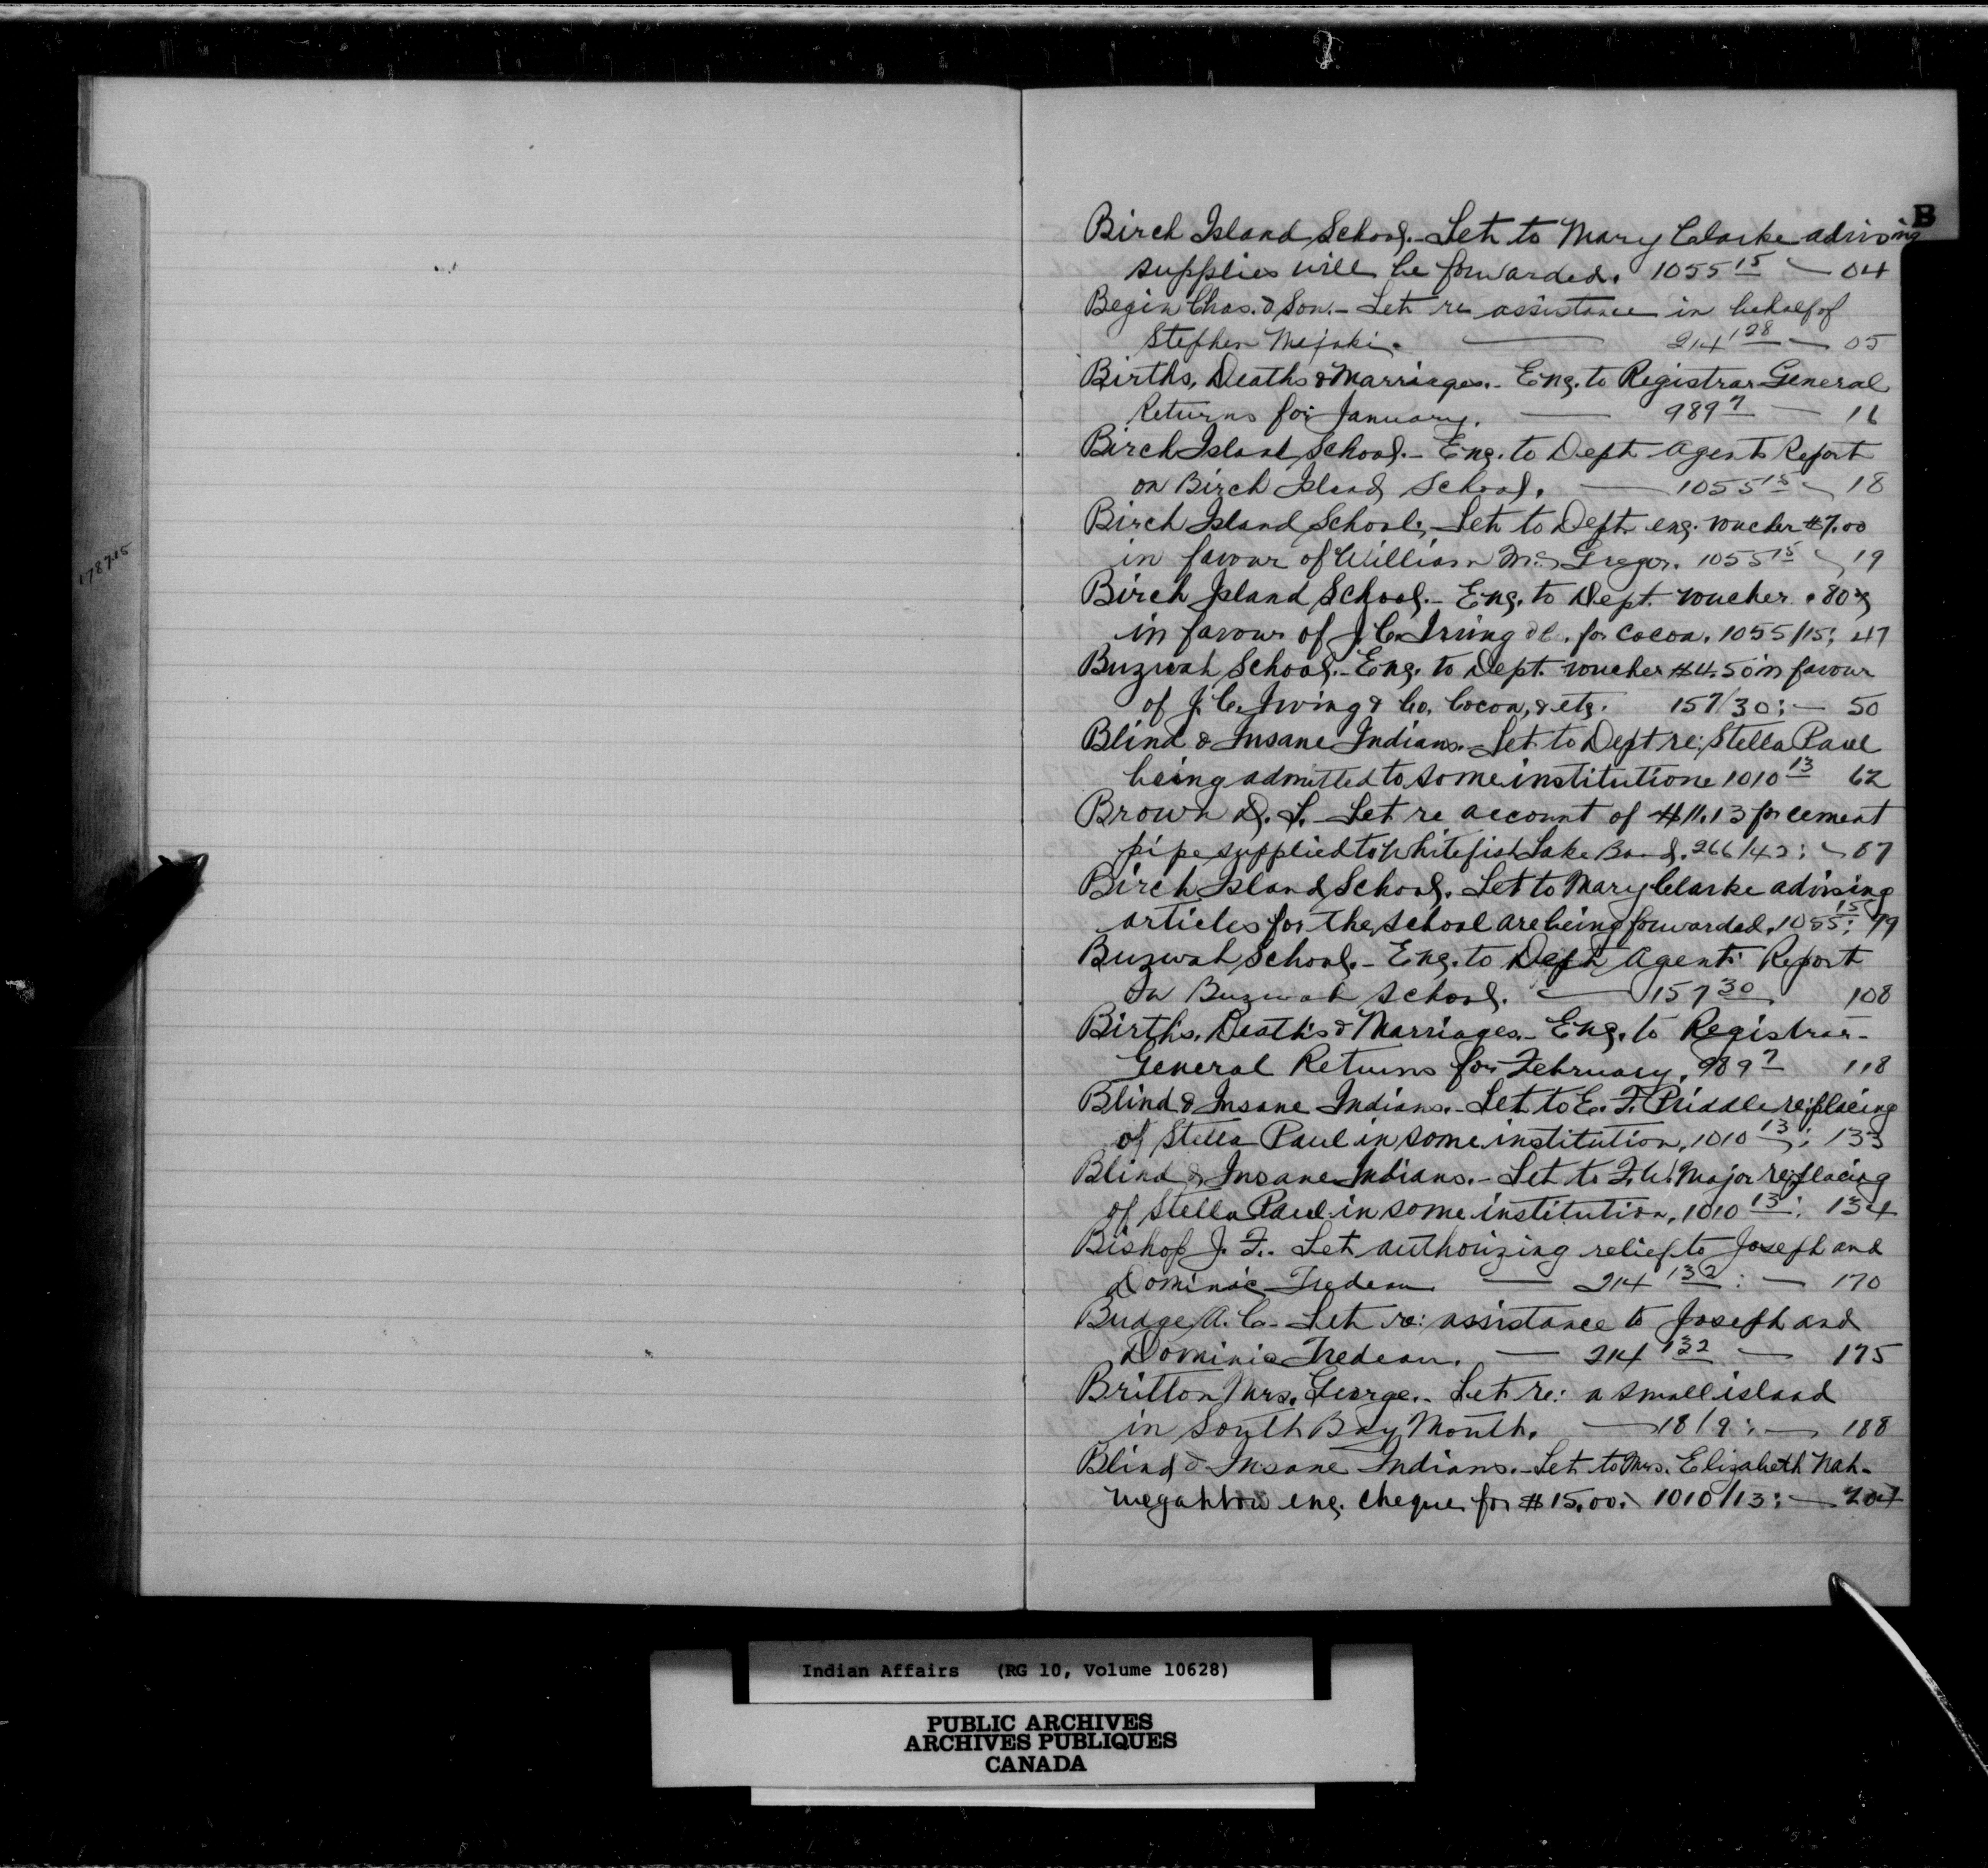 B
Birch Island School.- Let. to Mary Clarke advising
supplies will be forwarded. 1055 15 — 04
Begin Chas. & Son.- Let. re assistance in behalf of
Stephen — 214 128 — 05
Births, Deaths & Marriages.- Eng. to Registrar General
Returns for January. — 989 7 — 16
Birch Island School.- Eng. to Dept Agents Report
on Birch Island School. — 1055 15 — 18
Birch Island School.- Let. to Dept. eng. voucher $7.00
in favour of William McGregor. 1055 15 — 19
Birch Island School.- Eng. to Dept. voucher .80¢
in favour of J. C. Irving & C. for Cocoa. 1055/15; 47
Buzwah School.- Eng. to Dept. voucher $4.50 in favour
of J. C. Irving & Co. Cocoa, & etc. 157/30: — 50
Blind & Insane Indians.- Let. to Dept re: Stella Paul
being admitted to some institution 1010 13 62
Brown D. L. - Let re account of $11.13 for cement
pipe supplied to Whitefish Lake Band. 266/42: — 87
Birch Island School. Let to Mary Clarke advising
articles for the school are being forwarded. 1055 15: 99
Buzwah School.- Eng. to Dept Agents Report
on Buzwah School. — 157 30 108
Births, Deaths & Marriages.- Eng. to Registrar-
General Returns for February, 989 7 118
Blind & Insane Indians.- Let. to E. F. Priddle re: placing
of Stella Paul in some institution, 1010 13: 133
Blind & Insane Indians.- Let. to F. W. Major re: placing
of Stella Paul in some institution, 1010 13: 134
Bishop J. F. Let. authorizing relief to Joseph and
Dominic Tredeau — 214 132: — 170
Budge A. C.- Let. re: assistance to Joseph and
Dominic Tredeau. — 214 132 — 175
Britton Mrs. George.- Let. re: a small island
in South Bay Mouth. — 18/9: — 188
Blind & Insane Indians.- Let. to Mrs. Elizabeth Nah-
eng. cheque for $15.00: 1010/13: — 204
178715
Indian Affairs (RG 10, Volume 10628)
PUBLIC ARCHIVES
ARCHIVES PUBLIQUES
CANADA